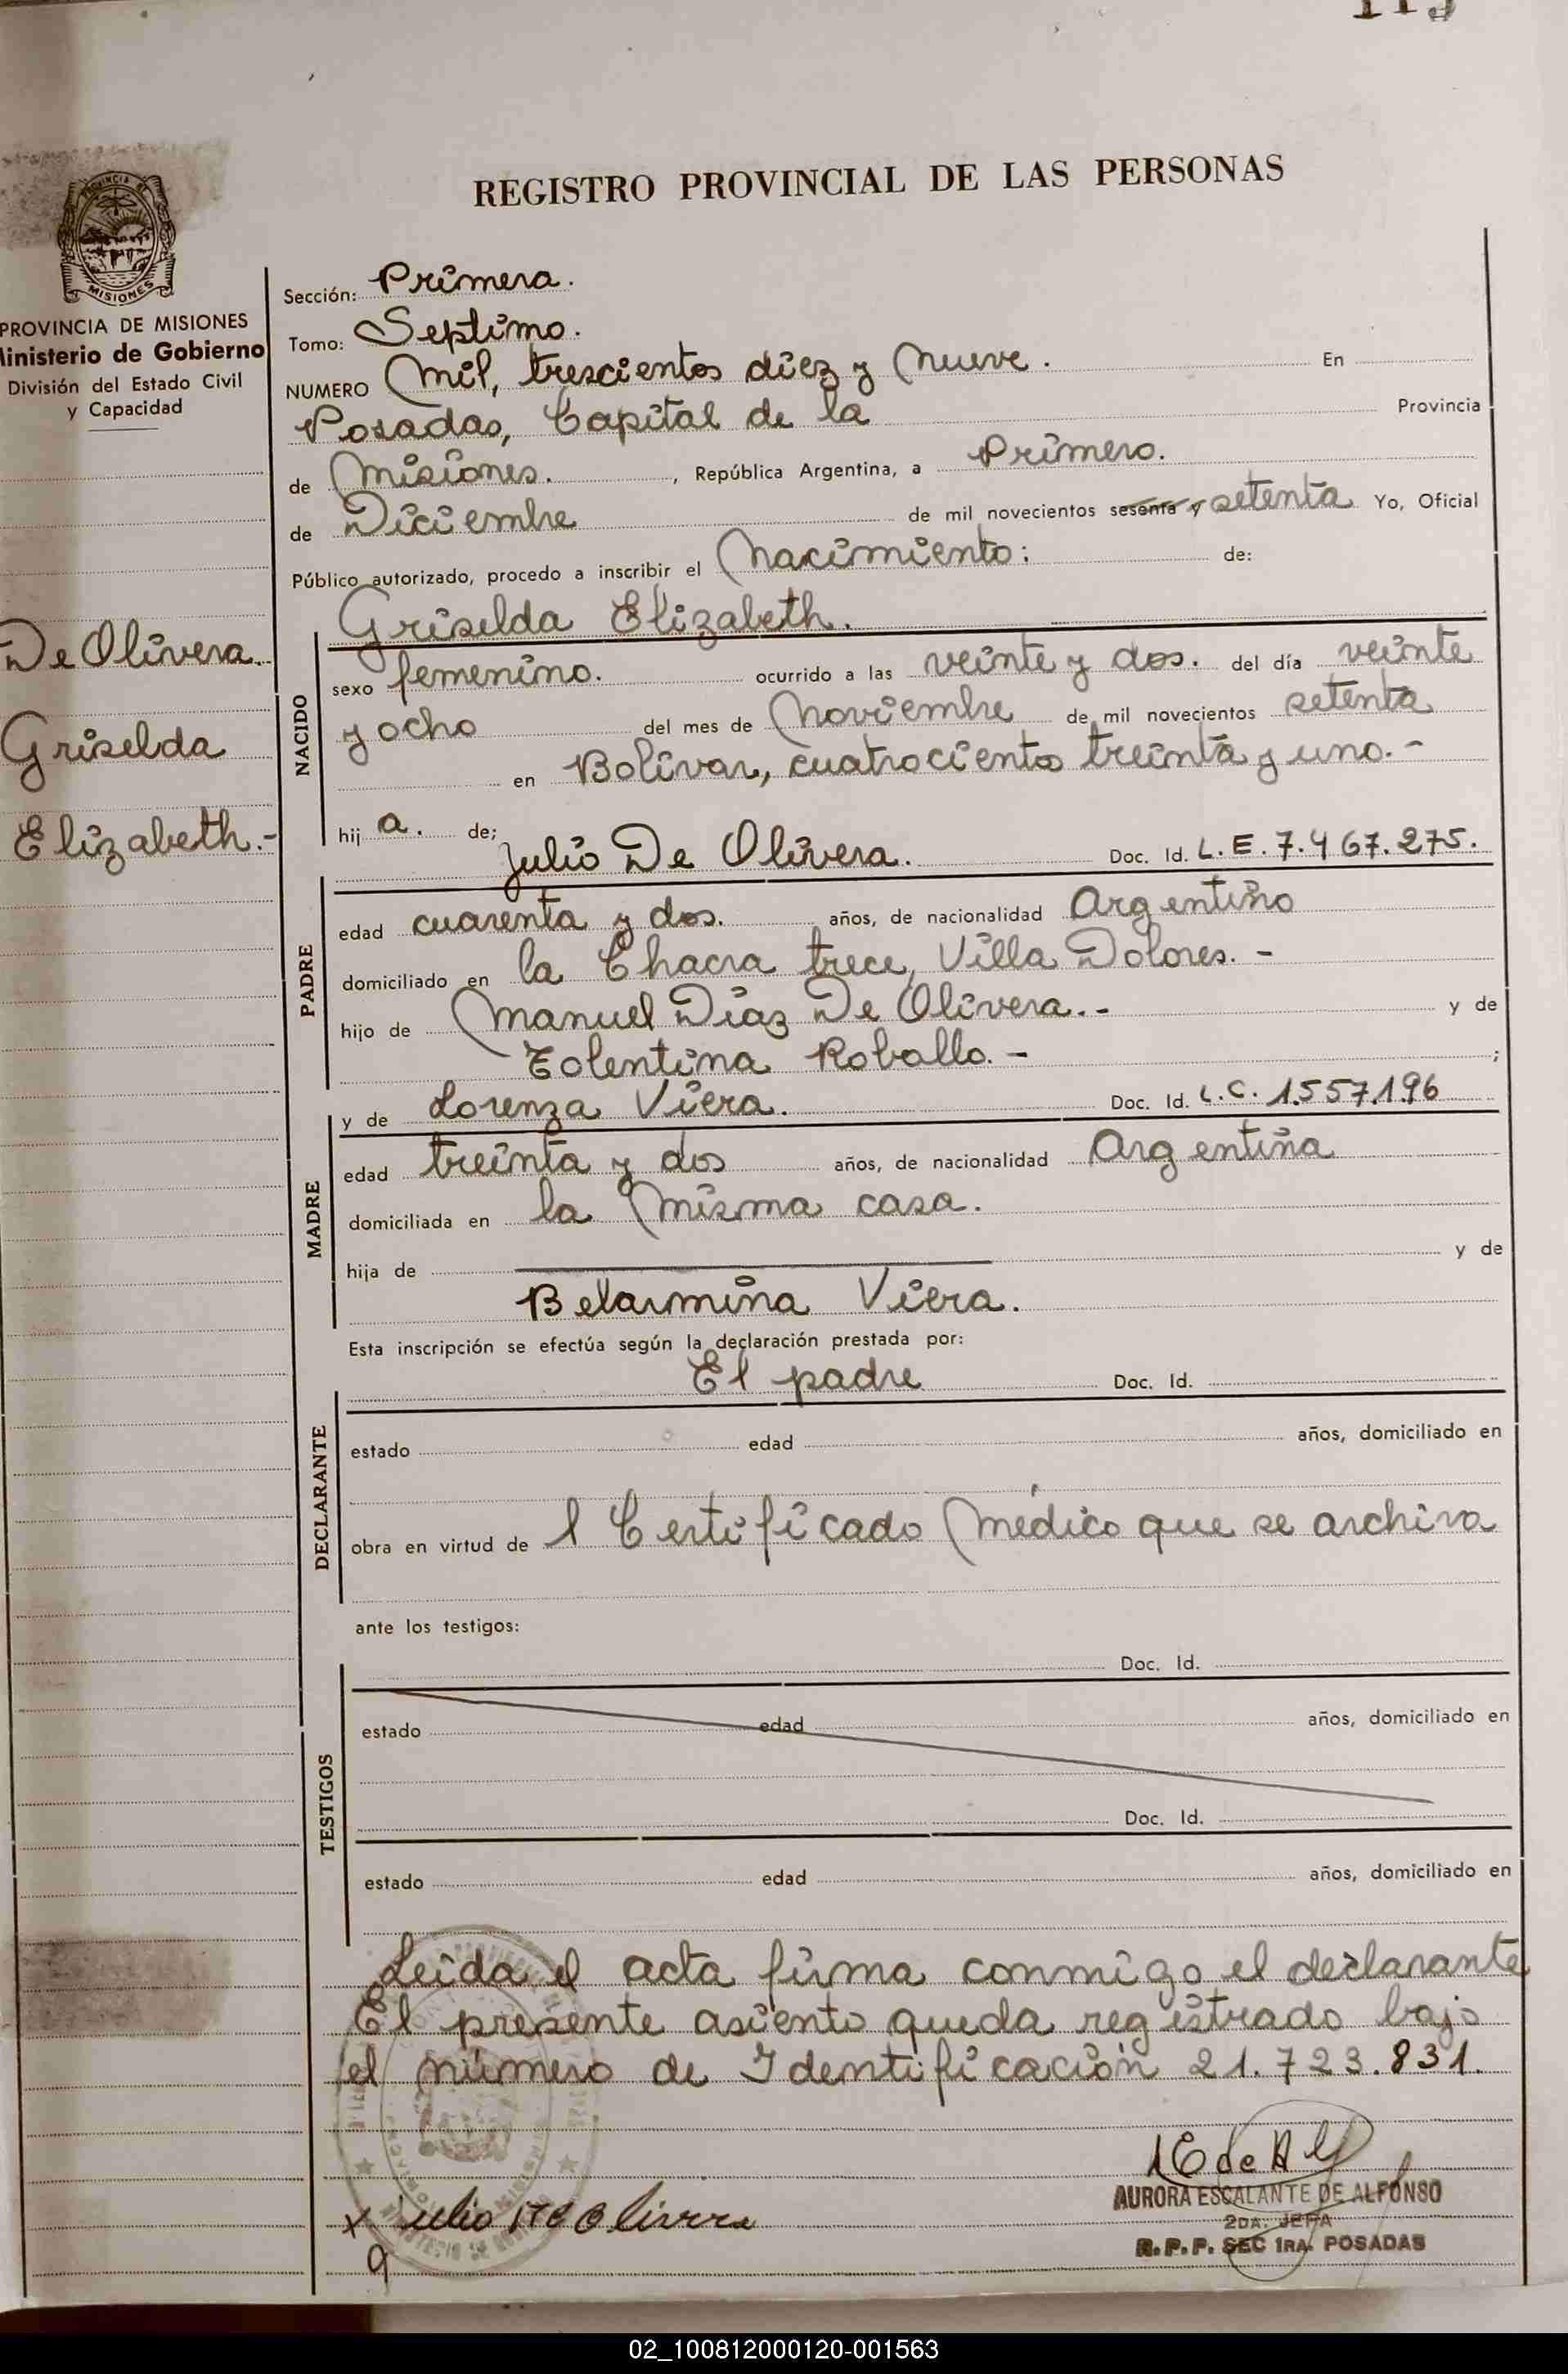 REGISTRO PROVINCIAL DE LAS PERSONAS
PROVINCIA DE MISIONES
Ministerio de Gobierno
División del Estado Civil
y Capacidad
De Olivera.
Griselda
Elizabeth.-
Sección: Primera.
Tomo: Septimo.
NUMERO Mil, trescientos diez y nueve. En
Posadas, Capital de la Provincia
de Misiones. , República Argentina, a Primero.
de Diciembre de mil novecientos sesenta y setenta Yo, Oficial
Público autorizado, procedo a inscribir el Nacimiento: de:
Griselda Elizabeth.
NACIDO
sexo femenino. ocurrido a las veinte y dos. del día veinte
y ocho del mes de Noviembre de mil novecientos setenta
en Bolivar, cuatrocientos treinta y uno.-
hij a. de;
Julio De Olivera. Doc. Id. L.E. 7.467.275.
PADRE
edad cuarenta y dos. años, de nacionalidad Argentino
domiciliado en la Chacra trece, Villa Dolores.-
hijo de Manuel Diaz De Olivera.- y de
Tolentina Roballo.- ;
y de Lorenza Viera. Doc. Id. L.C. 1.557.196
MADRE
edad treinta y dos años, de nacionalidad Argentina
domiciliada en la misma casa.
hija de y de
Belarmina Viera.
Esta inscripción se efectúa según la declaración prestada por:
El padre Doc. Id.
DECLARANTE
estado edad años, domiciliado en
obra en virtud de l Certificado Médico que se archiva
ante los testigos:
Doc. Id.
TESTIGOS
estado edad años, domiciliado en
Doc. Id.
estado edad años, domiciliado en
Leida el acta firma conmigo el declarante
El presente asiento queda registrado bajo
el número de Identificación 21.723.831.
x Julio De Olivera
AURORA ESCALANTE DE ALFONSO
2DA. JEFA
R.P.P. SEC 1RA. POSADAS
02_100812000120-001563